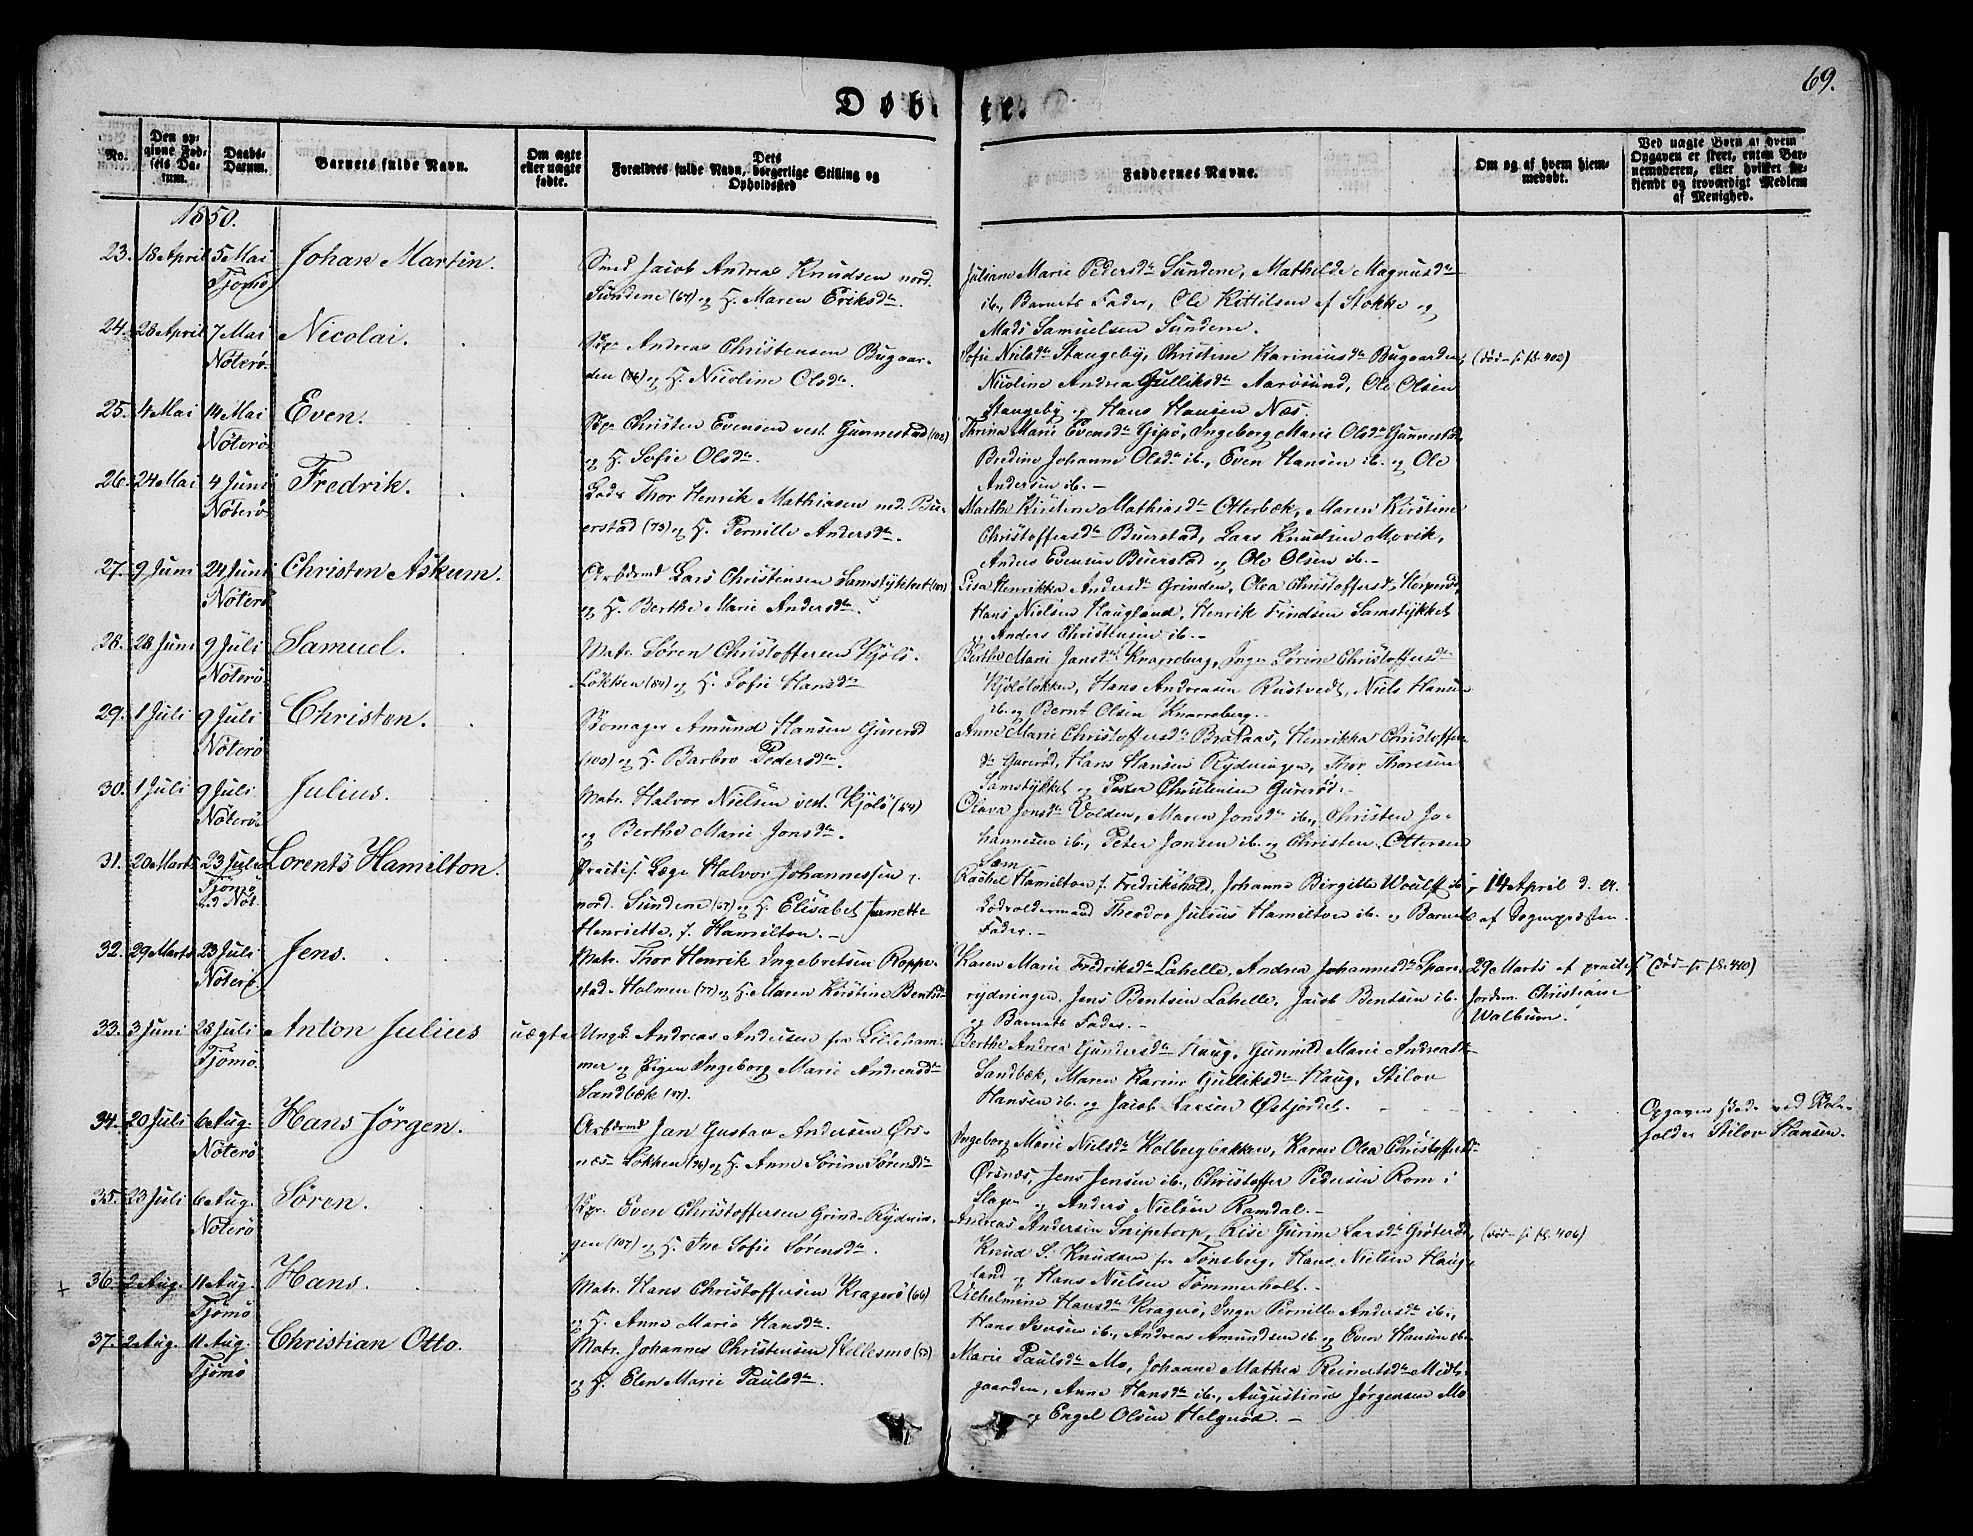 69.
Døbte.
No.
Den opgivne Fødsels Datum.
Daabs-Datum.
Barnets fulde Navn.
Om ægte eller uægte fødte.
Dets Forældres fulde Navn, borgerlige Stilling og Opholdssted
Faddernes Navne.
Om og af hvem hjemmedøbt.
Ved uægte Børn af hvem Opgaven er skeet, enten Barnemoderen, eller hvilket bekjendt og troværdigt Medlem af Menighed.
1850.
23. 18 April 5 Mai Tjømø Johan Martin.
Smed Jacob Andreas Knudsen nord.
Sundene (64) og H. Maren Eriksdtr.
Juliane Marie Pedersdtr Sundene, Mathilde Magnusdtr
ib., Barnets Fader, Ole Kittilsen af Stokke og
Mads Samuelsen Sundene.
24. 28 April 7 Mai Nøterø Nicolai.
Andreas Christensen Bugaar-
den (76) og H. Nicoline Olsdtr.
Sofie Nielsdtr Stangeby, Christine Kariniusdtr Bugaarden,
Nicoline Andrea Gulliksdtr Aarøsund, Ole Olsen
Stangeby og Hans Hansen Næs.
(død - fl. 402)
25. 4 Mai 14 Mai Nøterø Even.
Christen Evensen vest. Gunnestad (102)
og H. Sofie Olsdtr.
Thrina Marie Evensdtr Gipø, Ingeborg Marie Olsdtr Gunnestad,
Bredine Johanne Olsdtr ib., Even Hansen ib. og Ole
Andersen ib. -
26. 24 Mai 4 Juni Nøterø Fredrik.
Lods Thor Henrik Mathiasen ned. Bu-
erstad (73) og H. Pernille Andersdtr.
Marthe Kirstine Mathiasdtr Otterbæk, Maren Kirstine
Christoffersdtr Buerstad, Lars Knudsen Movik,
Anders Evensen Buerstad og Ole Olsen ib. -
27. 9 Juni 24 Juni Nøterø Christen Askum.
Arbdsmd Lars Christensen Samstykket (104)
og H. Berthe Marie Andersdtr.
Lisa Henrikka Andersdtr Grinden, Olea Christoffersdtr
Hans Nielsen Haugland, Henrik Findsen Samstykket
og Anders Christensen ib. -
28. 28 Juni 9 Juli Nøterø Samuel.
Matr. Søren Christoffersen Kjølø-
Løkken (84) og H. Sofie Hansdtr
Berthe Marie Jansdtr Knarreberg, Inger Sørine Christoffersdtr
Kjøløløkken, Hans Andreasen Rustvedt, Niels Hansen
ib. og Bernt Olsen Knarreberg. -
29. 1 Juli 9 Juli Nøterø Christen.
Amund Hansen Gurerød
(100) og H. Barbro Pedersdtr.
Anne Marie Christoffersdtr Brataas, Henrikka Christoffers
dtr Gurerød, Hans Hansen Rydningen, Thor Thoresen
Samstykket og Peder Christensen Gurerød. -
30. 1 Juli 9 Juli Nøterø Julius.
Matr. Halvor Nielsen vest. Kjølø (84)
og Berthe Marie Jonsdtr.
Olava Jonsdtr Volden, Maren Jonsdtr ib., Christen Jo-
hannesen ib., Peter Jonsen ib. og Christen Ottersen
Sem
31. 20 Marts 23 Juli Tjømø ved Nøt. Lorents Hamilton.
Practis. Læge Halvor Johannessen
nord. Sundene (64) og H. Elisabet Jeanette
Henriette, f. Hamilton. -
Rachel Hamilton f. Fredrikshald, Johanne Birgitte Woulff ib.
Lodsoldermand Theodor Julius Hamilton ib. og Barnets
Fader. -
14 April d. A.
af Sognepræsten.
32. 29 Marts 23 Juli Nøterø Jens.
Matr. Thor Henrik Ingebretsen Roppe-
stad-Holmen (77) og H. Maren Kirstine Bentsd
Karen Marie Fredriksdtr Lahelle, Andrea Johannesdtr Spare,
rydningen, Jens Bentsen Lahelle, Jacob Bentsen ib.
og Barnets Fader. -
29 Marts af practis.
Jordem. Christiane
Walbum.
(død - fl. 410)
33. 3 Juni 28 Juli Tjømø Anton Julius uægte
Ungk. Andreas Andersen fra Lilleham-
mer og Pigen Ingeborg Marie Andreasdtr
Sandbæk (67).
Berthe Andrea Gundersdtr Haug, Gunnild Marie Andreasdtr
Sandbæk, Maren Karine Gulliksdtr Haug, Stilov
Hansen ib. og Jacob Larsen Østjordet.
Opgaven skede ved
Stilov Hansen.
34. 20 Juli 6 Aug. Nøterø Hans Jørgen.
Arbdsmd Jan Gustav Andersen Ørs-
næs-Løkken (96) og H. Anne Sørine Sørensdtr
Ingeborg Marie Nielsdtr Kolbergbakken, Karen Olea Christoffersd
Ørsnæs, Jens Jensen ib., Christoffer Pedersen Rom i
Slagen og Anders Nielsen Ramdal. -
35. 23 Juli 6 Aug. Nøterø Søren.
Even Christoffersen Grind-Rydnin-
gen (107) og H. Ine Sofie Sørensdtr.
Andreas Andersen Snipetorp, Risø Gurine Larsdtr Grøterød,
Knud S. Knudsen fra Tønsberg, Hans Nielsen Haug-
land og Hans Nielsen Tømmerholt. -
(død - fl. 406)
+ 36. 2 Aug. 11 Aug. Tjømø Hans.
Matr. Hans Christoffersen Kragerø (66)
og H. Anne Maria Hansdtr.
Vilhelmine Hansdtr Kragerø, Inger Pernille Andersdtr ib.,
Hans Iversen ib., Andreas Amundsen ib og Even Hansen ib.
37. 2 Aug. 11 Aug. Tjømø Christian Otto.
Matr. Johannes Christensen Hellesmo (57)
og H. Elen Marie Paulsdtr.
Marie Paulsdtr Mo, Johanne Mathea Reinertsdtr Midt-
gaarden, Anne Hansdtr ib., Augustinus Jørgensen Mo
og Engel Olsen Helgerød. -